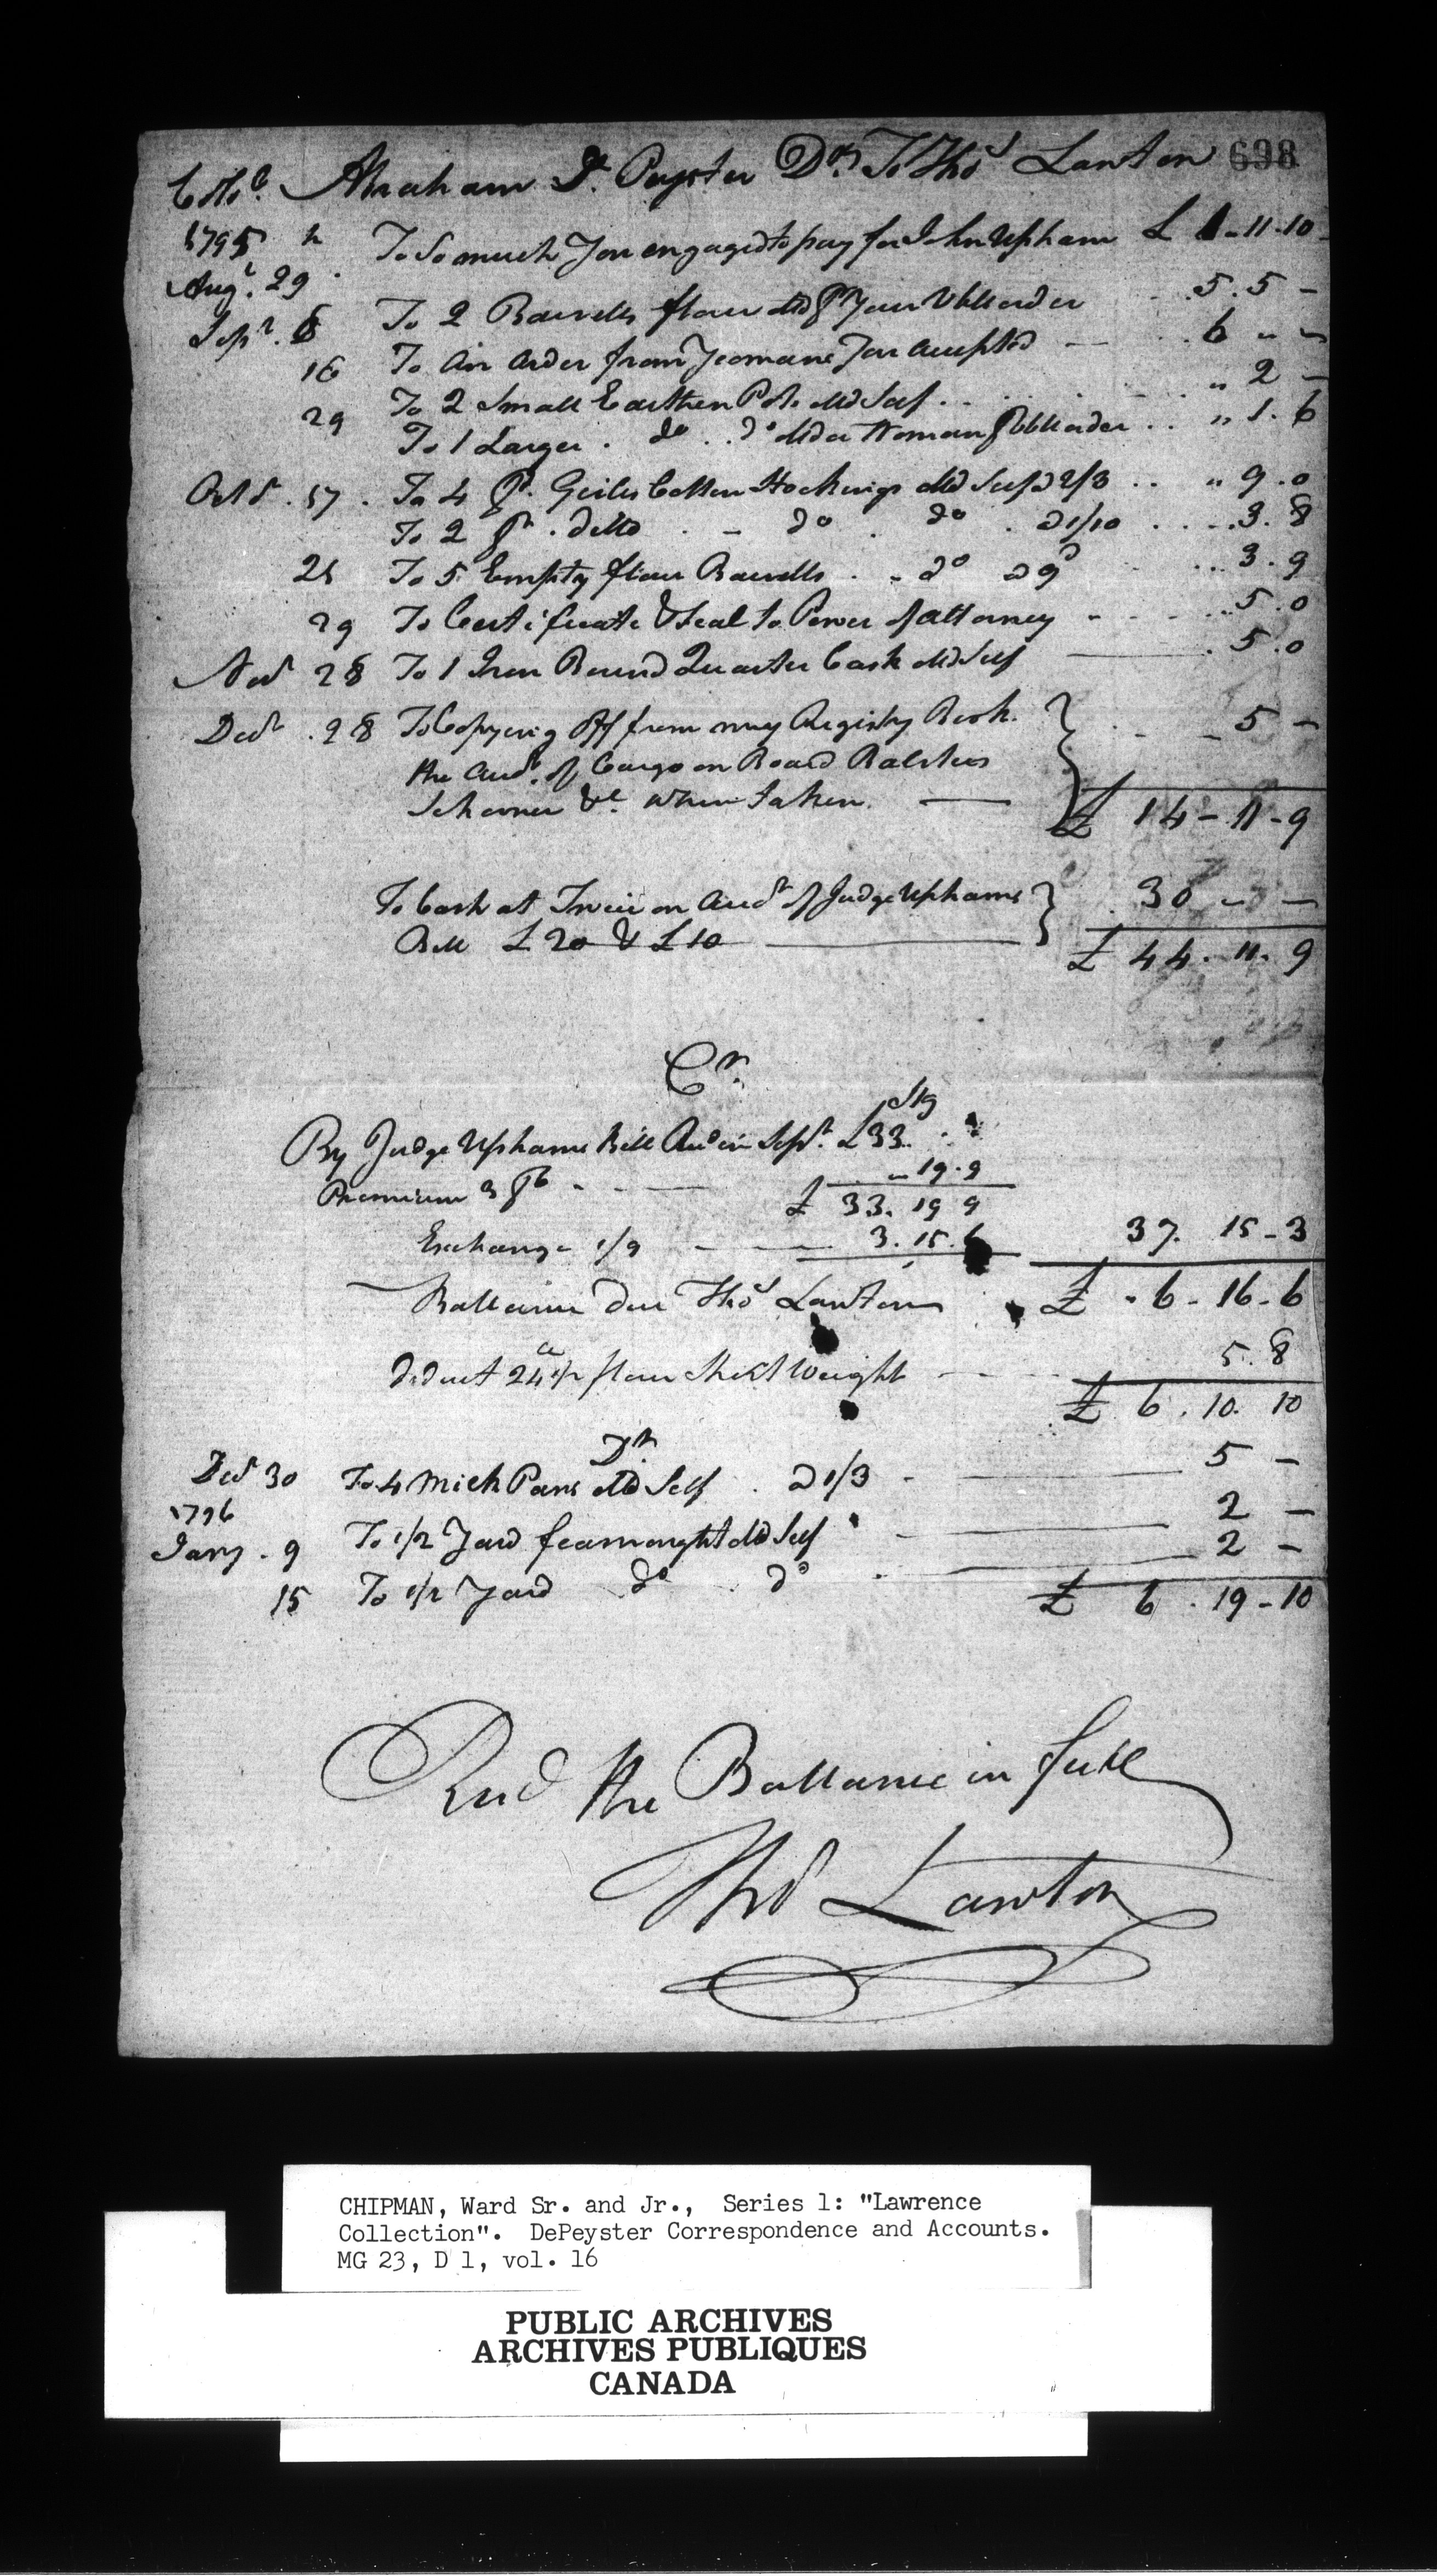 698
Abraham De Peyster Dr. To Thos Lawton
1795
Augt. 29 To So much You engaged to pay for John Upham £ 1-11-10
Sepr. 8 To 2 Barrells flour dld pr Your Vbll order 5.5-
16 To an order from Yeomans You accepted 6 " "
29 To 2 Small Earthen Pots dld Self " 2 -
To 1 Larger do do dld a Woman pr Vbll order " 1.6
Octr. 17 To 4 pr. Cotton Stockings dld Self @ 2/3 " 9.0
To 2 pr. ditto - do do @ 1/10 3.8
To 5 Empty flour Barrells - do @ 9d 3.9
29 To Certificate & Seal to Power of attorney - - - 5.0
Novr 28 To 1 Iron Bound Quarter Cask dld Self 5.0
Decr. 28 To Copying Off from my Registry Book 5 -
the Acct. of Cargo on Board Ralstons
Schooner &c when taken £ 14-11-9
To Cash at Twice on Acct of Judge Uphams 30 - -
Bill £20 & £10 £ 44.11.9
Cr.
Stg
By Judge Uphams Bill Recd in Sepr. £33.
Premium 3 pr - - " 19.9
£ 33.19 9
Exchange 1/9 3.15.6 37.15-3
Ballance Due Thos Lawton £ 6-16-6
Deduct 24 1/2 flour short Weight 5.8
£ 6.10.10
Dr.
Decr 30 To 4 Milk Pans dld Self @ 1/3 5 -
1796
Jany. 9 To 1/2 Yard fearnought dld Self 2 -
15 To 1/2 Yard do do 2 -
£ 6.19-10
Recd the Ballance in full
Thos Lawton
CHIPMAN, Ward Sr. and Jr., Series 1: "Lawrence
Collection". DePeyster Correspondence and Accounts.
MG 23, D 1, vol. 16
PUBLIC ARCHIVES
ARCHIVES PUBLIQUES
CANADA